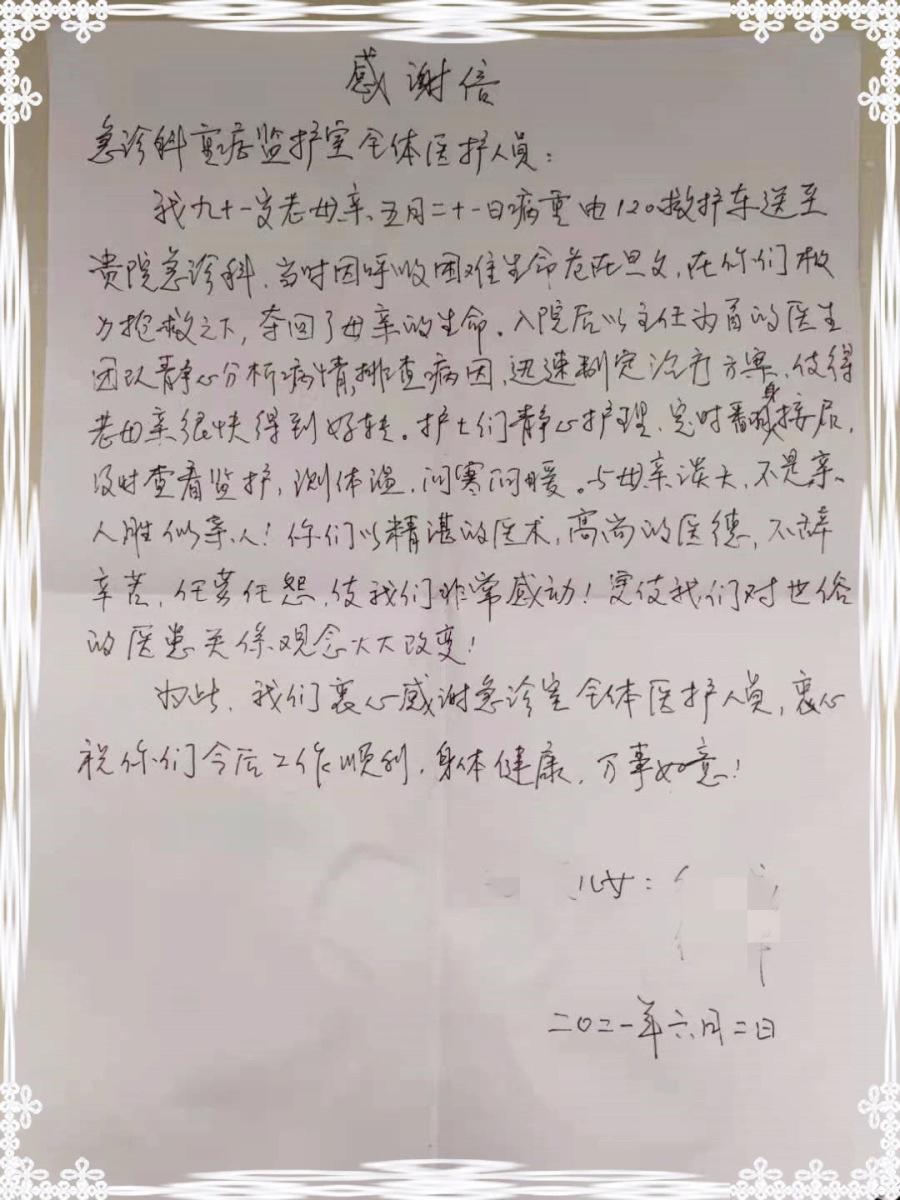 感谢信
急诊科重症监护室全体医护人员：
我九十一岁老母亲、五月二十一日病重由120救护车送至
贵院急诊科、当时因呼吸困难生命危在旦夕，在你们极
力抢救之下，夺回了母亲的生命。入院后以主任为首的医生
团队静心分析病情，排查病因，迅速制定治疗方案，使得
老母亲很快得到好转。护士们静心护理、定时翻身接尿，
及时查看监护，测体温，问寒问暖。与母亲谈天，不是亲
人胜似亲人！你们以精湛的医术，高尚的医德，不辞
辛苦，任劳任怨，使我们非常感动！更使我们对世俗
的医患关係观念大大改变！
为此，我们衷心感谢急诊室全体医护人员，衷心
祝你们今后工作顺利，身体健康，万事如意！
儿女：
二〇二一年六月二日